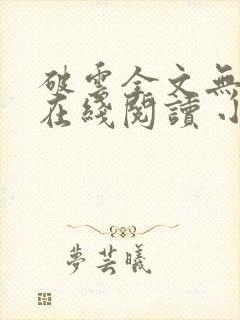 破雲全文無
在綫閱讀小
夢芸曦